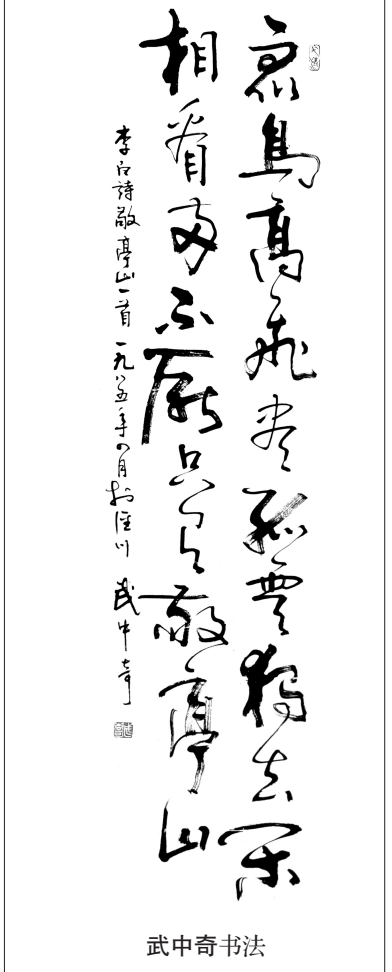 衆鳥高飛盡孤雲獨去閑
相看兩不厭只有敬亭山
李白詩敬亭山一首 一九八五年八月於涇川 武中奇
武中奇书法